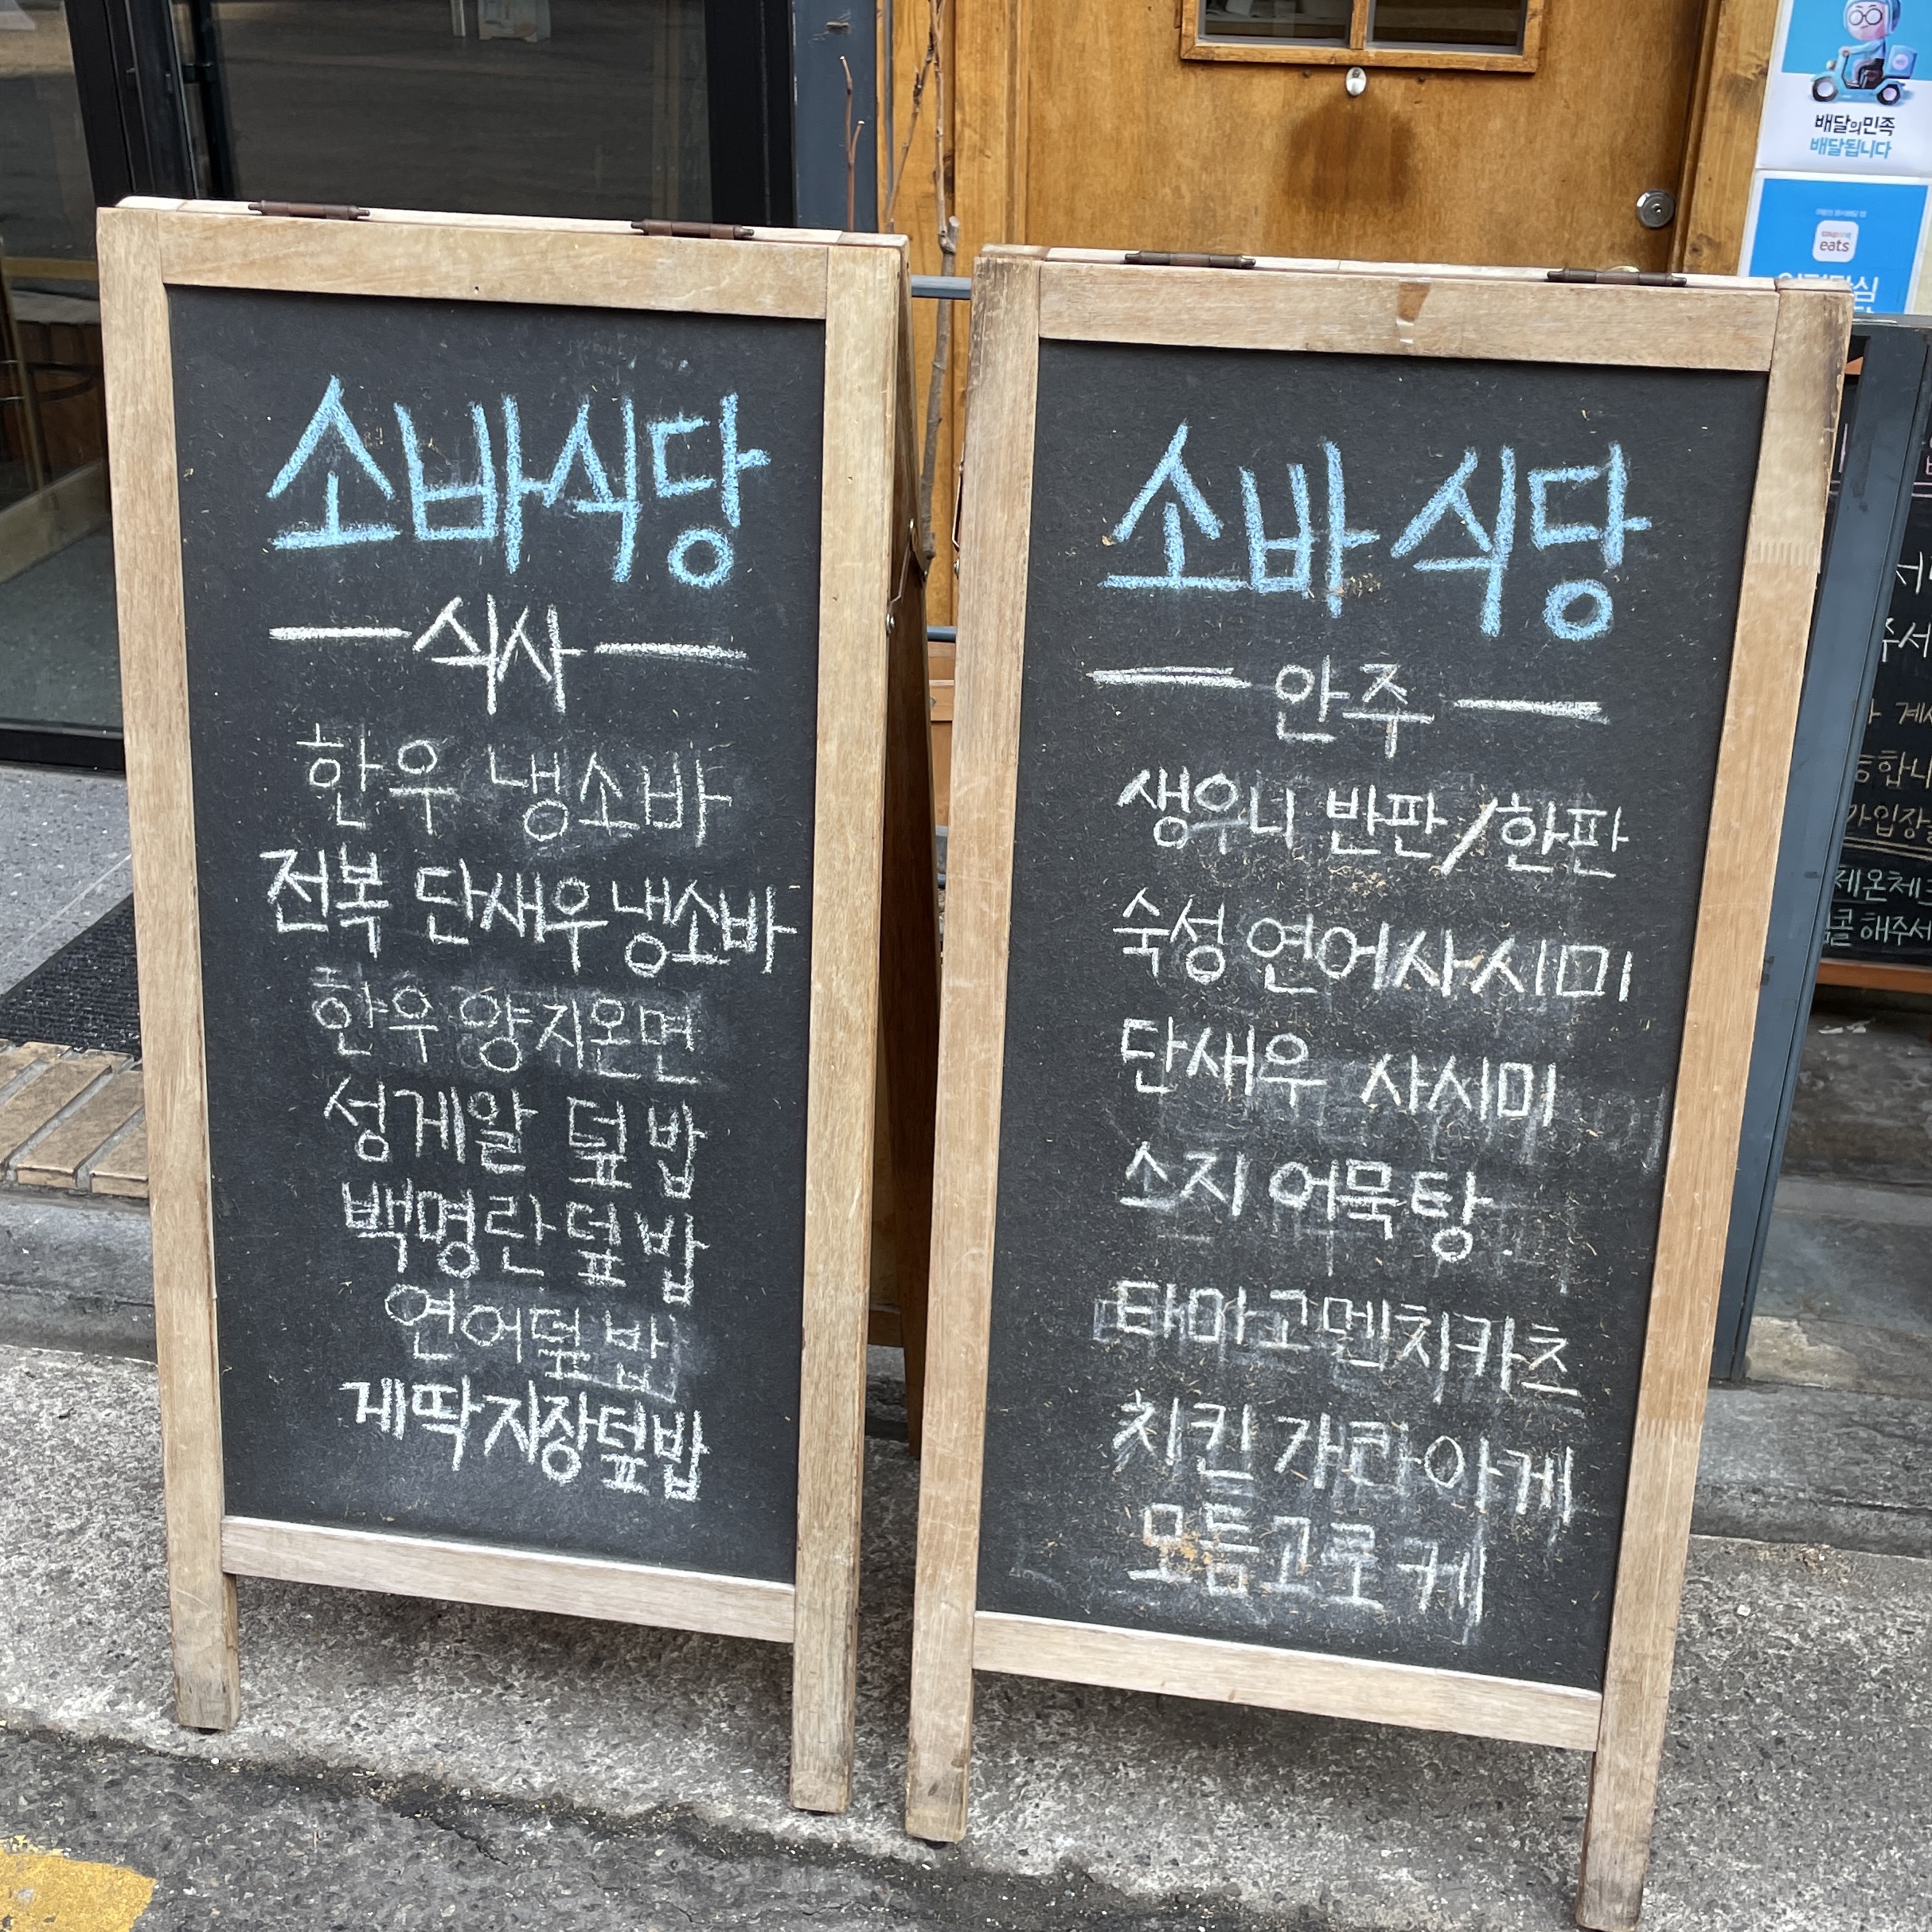 소바식당
식사
한우 냉소바
전복 단새우 냉소바
한우 양지온면
성게알 덮밥
백명란 덮밥
연어덮밥
게딱지장덮밥
소바식당
안주
생우니 반판/한판
숙성 연어사시미
단새우 사시미
소지 어묵탕
타마고멘치카츠
치킨 가란아게
모듬고로케
배달의민족
배달됩니다
eats